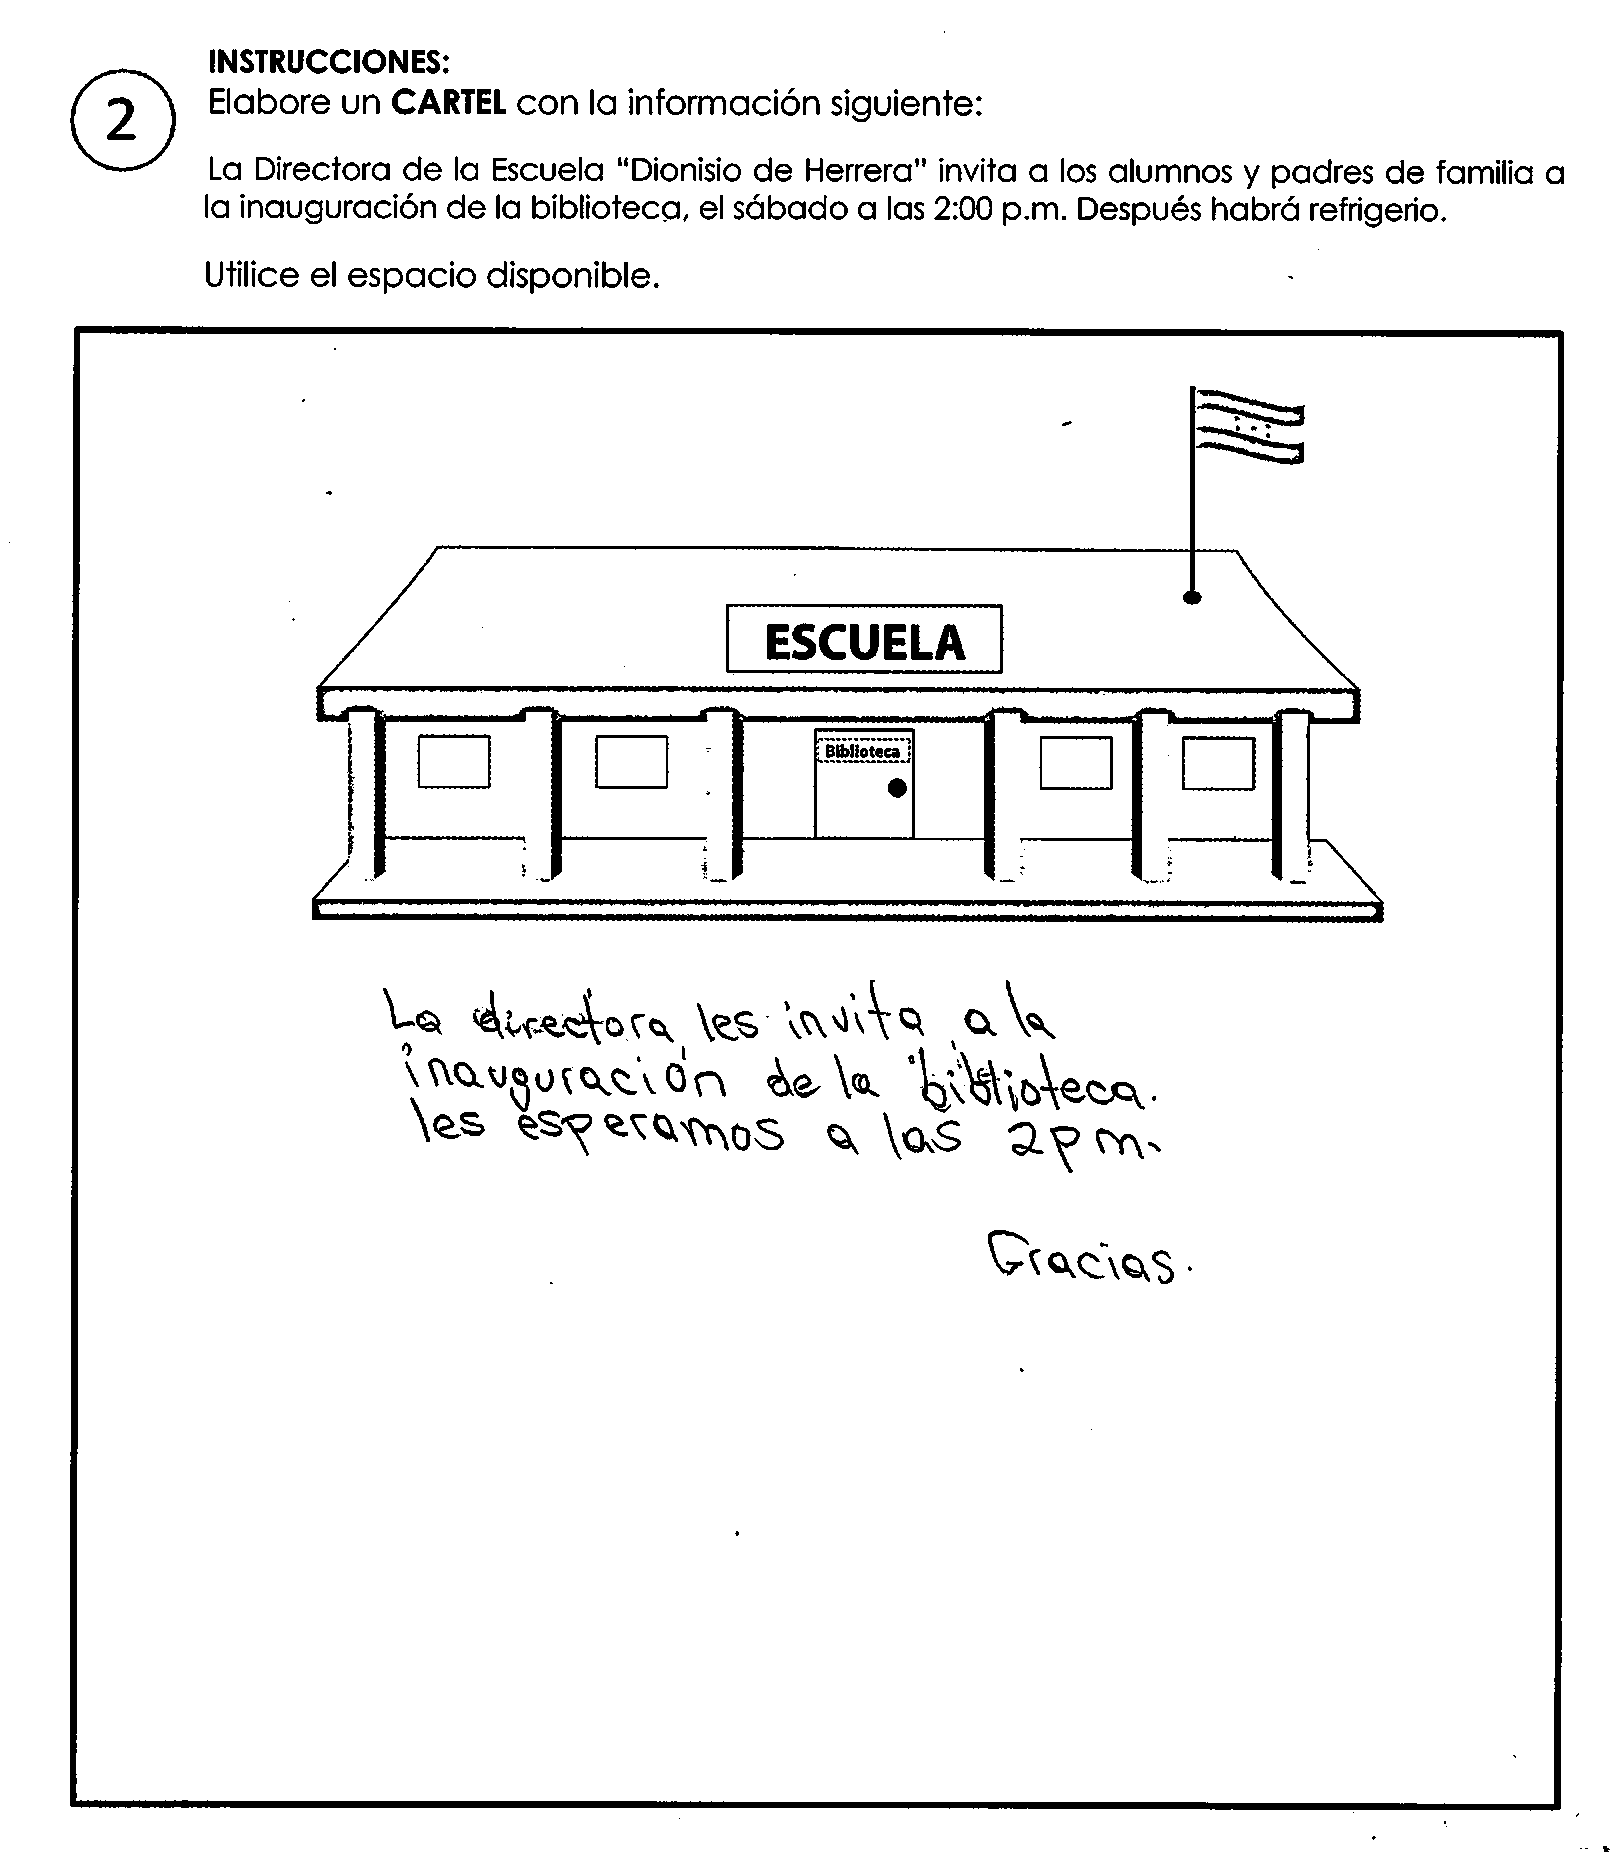 INSTRUCCIONES:
2
Elabore un CARTEL con la información siguiente:
La Directora de la Escuela "Dionisio de Herrera" invita a los alumnos y padres de familia a
la inauguración de la biblioteca, el sábado a las 2:00 p.m. Después habrá refrigerio.
Utilice el espacio disponible.
ESCUELA
Biblioteca
La directora les invita a la
inauguración de la biblioteca.
les esperamos a las 2pm.
Gracias.